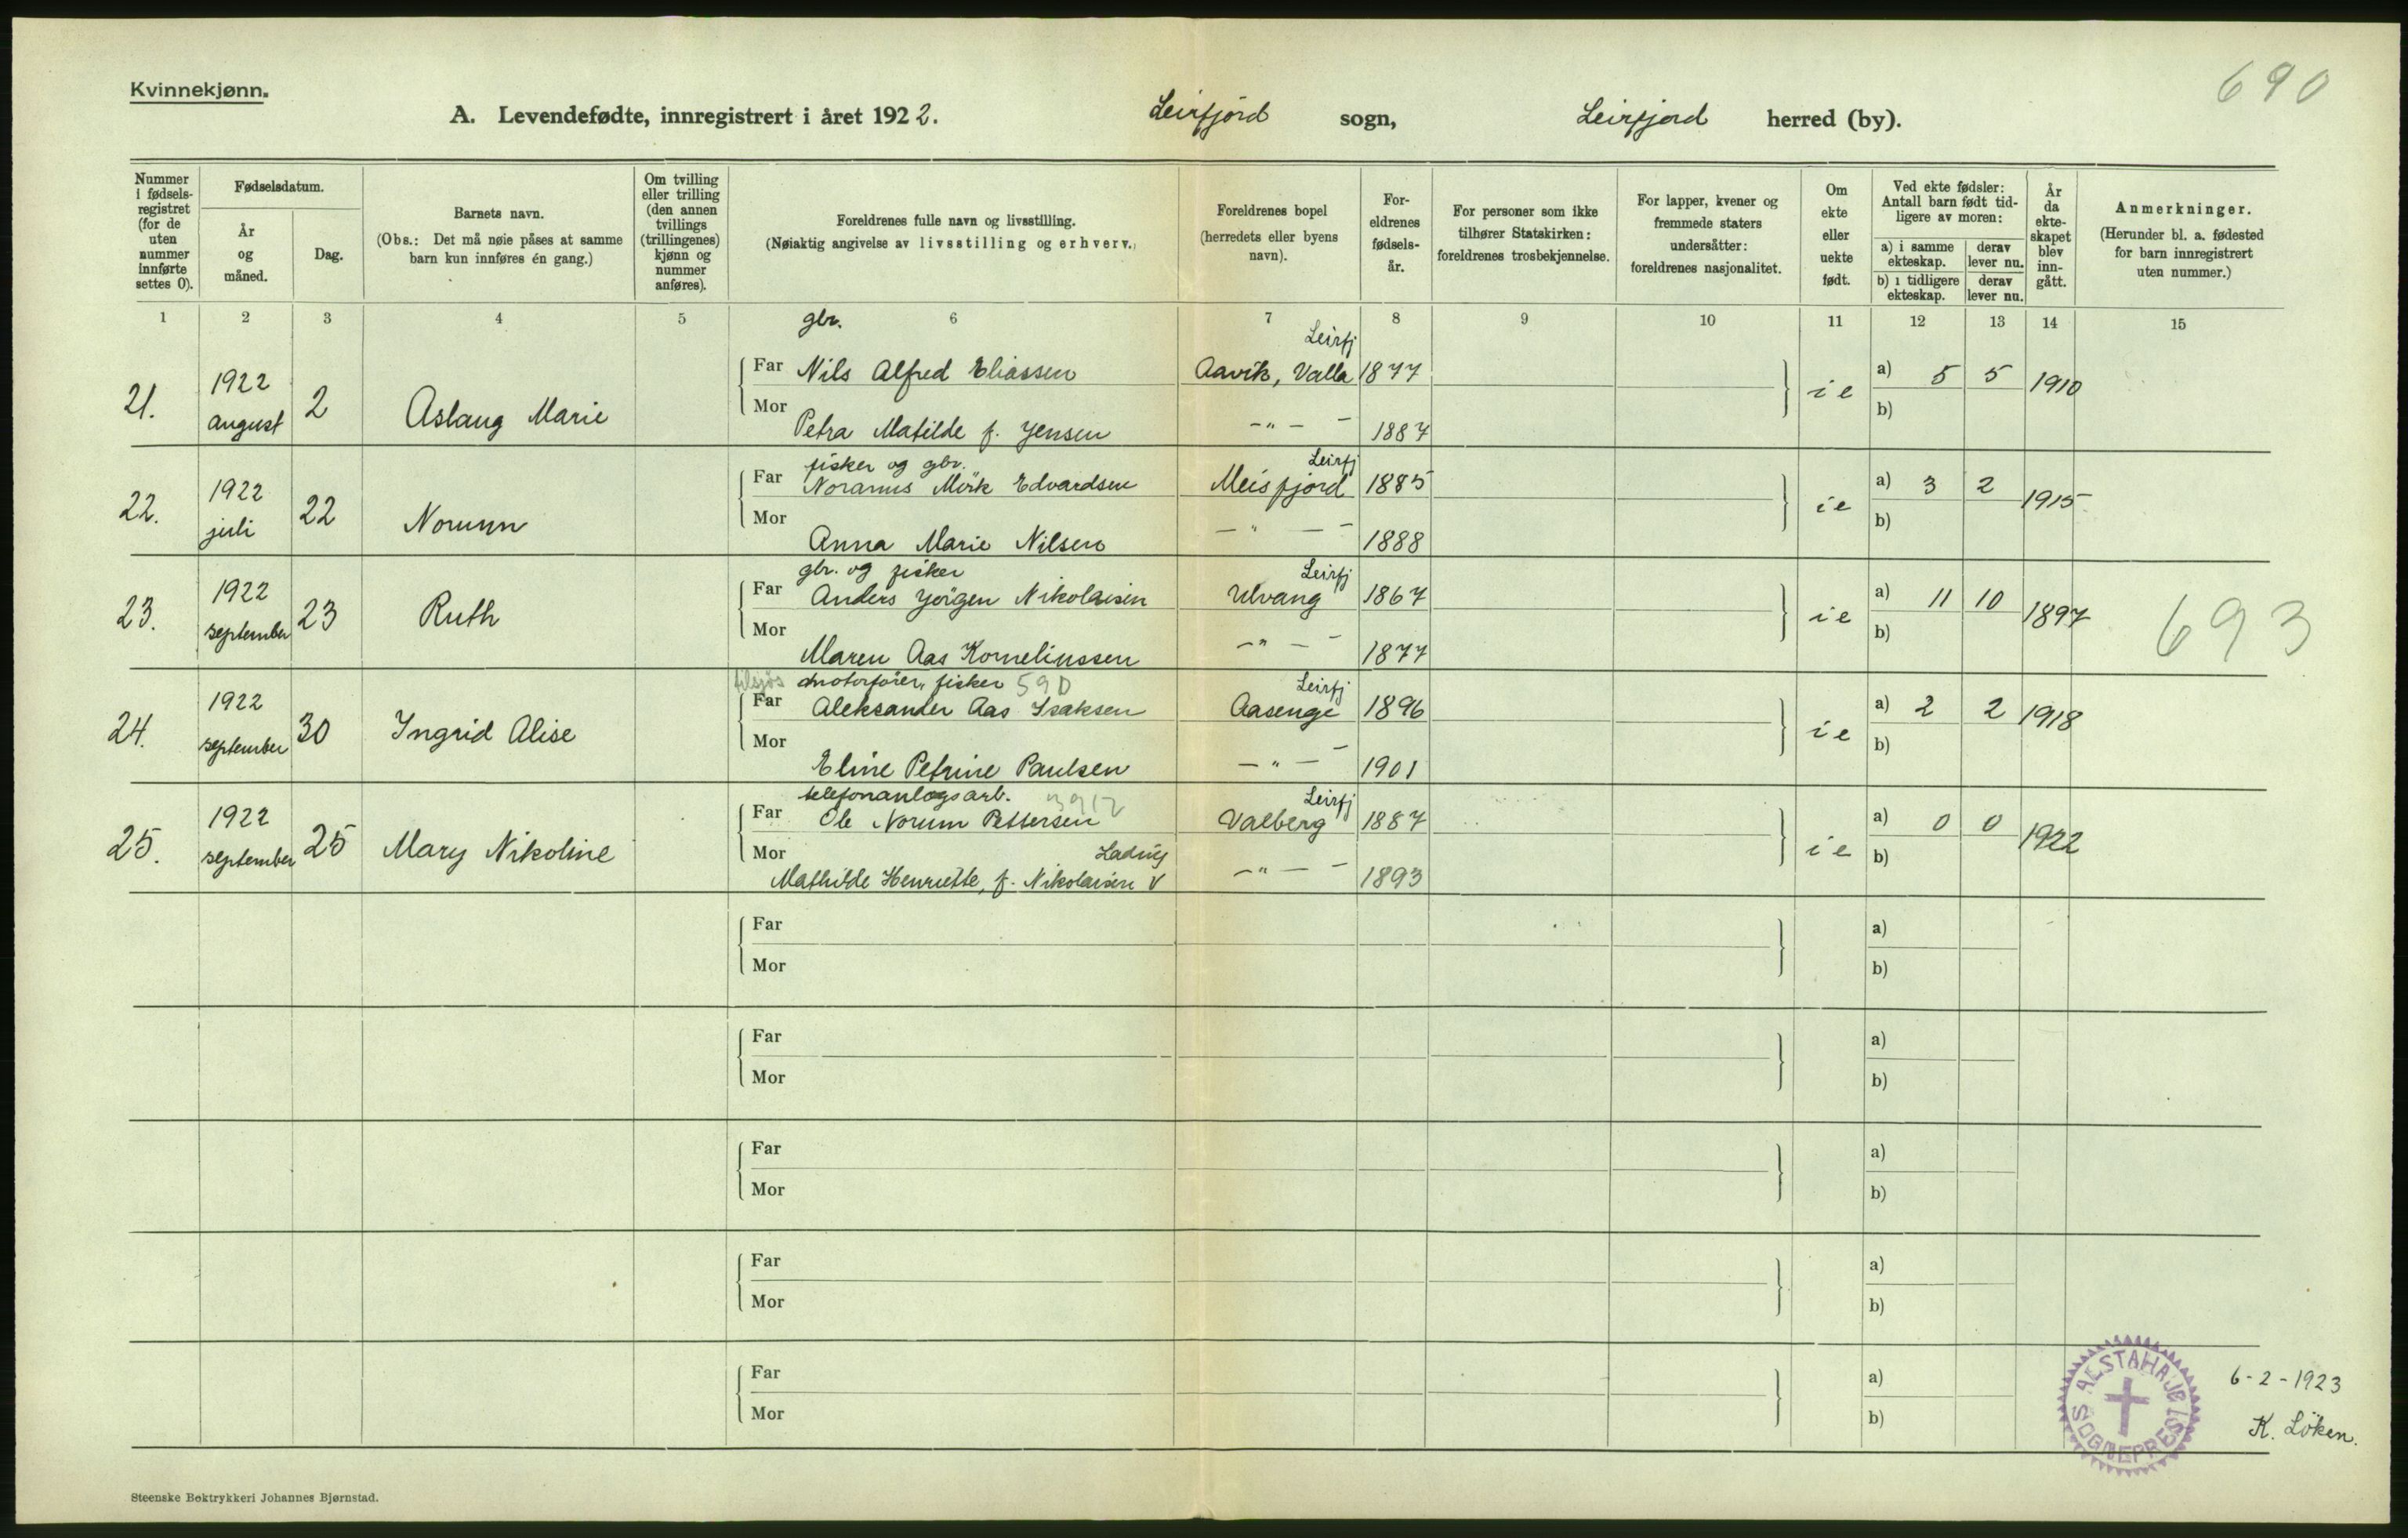 Kvinnekjønn.
690
A. Levendefødte, innregistrert i året 1922. Leirfjord sogn, Leirfjord herred (by).
Nummer i fødsels-registret (for de uten nummer innførte settes 0).
Fødselsdatum.
År og måned.
Dag.
Barnets navn.
(Obs.: Det må nøie påses at samme barn kun innføres én gang.)
Om tvilling eller trilling (den annen tvillings (trillingenes) kjønn og nummer anføres).
Foreldrenes fulle navn og livsstilling.
(Nøiaktig angivelse av livsstilling og erhverv.)
Foreldrenes bopel (herredets eller byens navn).
For-eldrenes fødsels-år.
For personer som ikke tilhører Statskirken: foreldrenes trosbekjennelse.
For lapper, kvener og fremmede staters undersåtter: foreldrenes nasjonalitet.
Om ekte eller uekte født.
Ved ekte fødsler: Antall barn født tid-ligere av moren:
a) i samme ekteskap. derav lever nu.
b) i tidligere ekteskap. derav lever nu.
År da ekte-skapet blev inn-gått.
Anmerkninger.
(Herunder bl. a. fødested for barn innregistrert uten nummer.)
1 2 3 4 5 6 7 8 9 10 11 12 13 14 15
gbr. Leirfj
21. 1922 august 2 Aslaug Marie Far Nils Alfred Eliassen Aavik, Valla 1877 i e a) 5 5 1910
Mor Petra Matilde f. Jensen -"- - 1887 b)
fisker og gbr. Leirfj
22. 1922 juli 22 Norunn Far Noranus Mörk Edvardsen Meisfjord 1885 i e a) 3 2 1915
Mor Anna Marie Nilsen -"- - 1888 b)
gbr. og fisker Leirfj
23. 1922 september 23 Ruth Far Anders Jörgen Nikolaisen Ulvang 1867 i e a) 11 10 1897 693
Mor Maren Aas Korneliussen -"- - 1877 b)
motorfører, fisker 590 Leirfj
24. 1922 september 30 Ingrid Alise Far Aleksander Aas Isaksen Aasenge 1896 i e a) 2 2 1918
Mor Eline Petrine Paulsen -"- - 1901 b)
telefonanlegsarb. 3912 Leirfj
25. 1922 september 25 Mary Nikoline Far Ole Norum Pettersen Valberg 1887 i e a) 0 0 1922
Mor Mathilde Henriette, f. Nikolaisen -"- - 1893 b)
Far a)
Mor b)
Far a)
Mor b)
Far a)
Mor b)
Far a)
Mor b)
Far a)
Mor b)
6-2-1923
K. Löken.
SOGNEPREST
Steenske Boktrykkeri Johannes Bjørnstad.